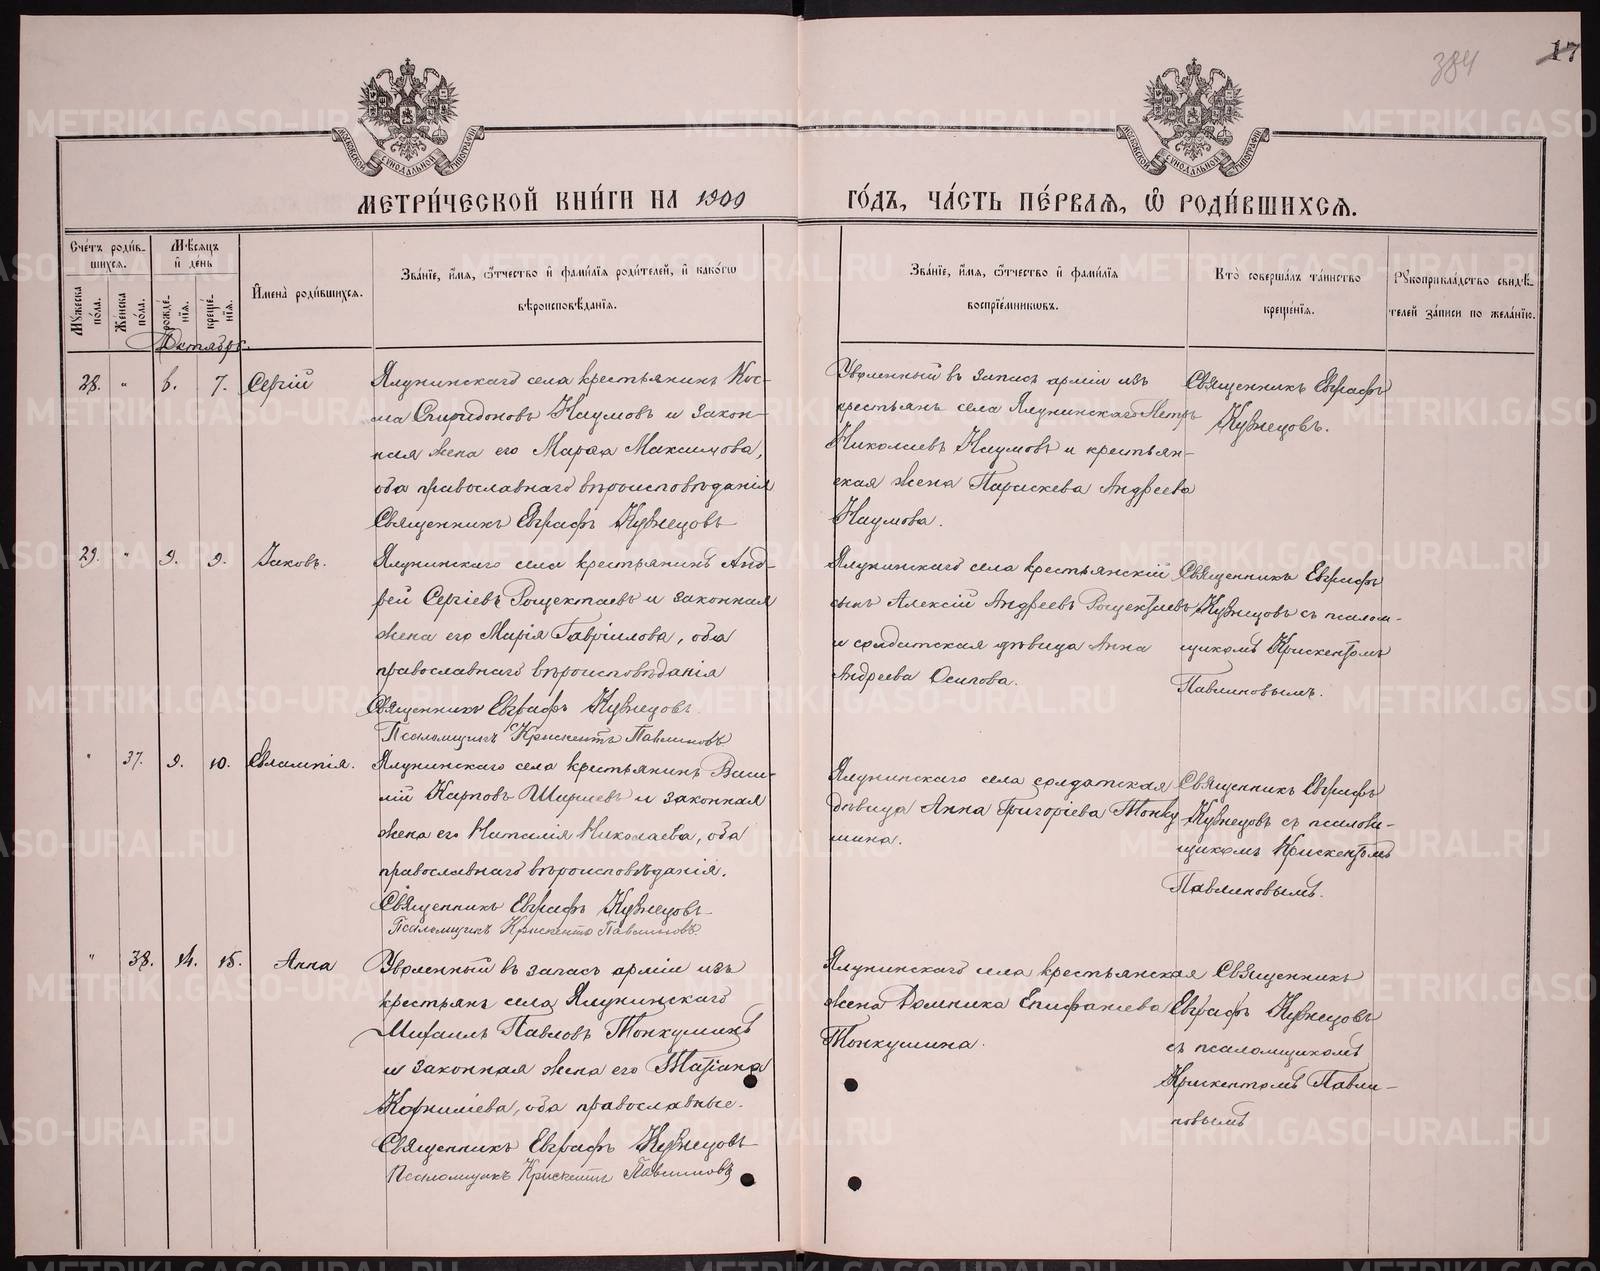 384
17
МОСКОВСКОЙ СУНОДАЛЬНОЙ ТИПОГРАФІИ
МОСКОВСКОЙ СУНОДАЛЬНОЙ ТИПОГРАФІИ
МЕТРИ́ЧЕСКОЙ КНИ́ГИ НА 1909
ГО́ДЪ, ЧА́СТЬ ПЕ́РВАѦ, Ѽ РОДИ́ВШИХСѦ.
Сче́тъ роди́в-
шихсѧ.
Мꙋжеска по́ла.
Же́нска по́ла.
Мѣ́сѧцъ
и҆ де́нь
рожде́-
нїѧ.
креще́-
нїѧ.
И҆мена̀ роди́вшихсѧ.
Зва́нїе, и҆́мѧ, ѻ҆́тчество и҆ фами́лїѧ роди́телей, и҆ како́гѡ
вѣроисповѣ́данїѧ.
Зва́нїе, и҆́мѧ, ѻ҆́тчество и҆ фами́лїѧ
воспрїе́мниковъ.
Кто̀ соверша́лъ та́инство
креще́нїѧ.
Рꙋкоприкла́дство свидѣ́-
телей за́писи по жела́нїю.
Октябрь.
28. " 6. 7. Сергій
Ялунинскаго села крестьянинъ Кос-
ма Спиридоновъ Наумовъ и закон-
ная жена его Марѳа Максимова,
оба православнаго вѣроисповѣданія
Священникъ Евграфъ Кузнецовъ
Уволенный въ запасъ арміи изъ
крестьянъ села Ялунинскаго Петръ
Николаевъ Наумовъ и крестьян-
ская жена Параскева Андреева
Наумова.
Священникъ Евграфъ
Кузнецовъ.
29. " 9. 9. Іаковъ.
Ялунинскаго села крестьянинъ Анд-
рей Сергіевъ Рощектаевъ и законная
жена его Марія Гавріилова, оба
православнаго вѣроисповѣданія
Священникъ Евграфъ Кузнецовъ
Псаломщикъ Крискентъ Павлиновъ
Ялунинскаго села крестьянскій
сынъ Алексій Андреевъ Рощектаевъ
и солдатская дѣвица Анна
Андреева Осипова.
Священникъ Евграфъ
Кузнецовъ съ псалом-
щикомъ Крискентомъ
Павлиновымъ.
" 37. 9. 10. Евлампія.
Ялунинскаго села крестьянинъ Васи-
лій Карповъ Ширяевъ и законная
жена его Наталія Николаева, оба
православнаго вѣроисповѣданія.
Священникъ Евграфъ Кузнецовъ
Псаломщикъ Крискентъ Павлиновъ.
Ялунинскаго села солдатская
дѣвица Анна Григоріева Тонку-
шина.
Священникъ Евграфъ
Кузнецовъ съ псалом-
щикомъ Крискентомъ
Павлиновымъ.
" 38. 14. 15. Анна
Уволенный въ запасъ арміи изъ
крестьянъ села Ялунинскаго
Михаилъ Павловъ Тонкушинъ
и законная жена его Татіана
Корниліева, оба православные.
Священникъ Евграфъ Кузнецовъ
Псаломщикъ Крискентъ Павлиновъ
Ялунинскаго села крестьянская
жена Домника Епифаніева
Тонкушина.
Священникъ
Евграфъ Кузнецовъ
съ псаломщикомъ
Крискентомъ Павли-
новымъ